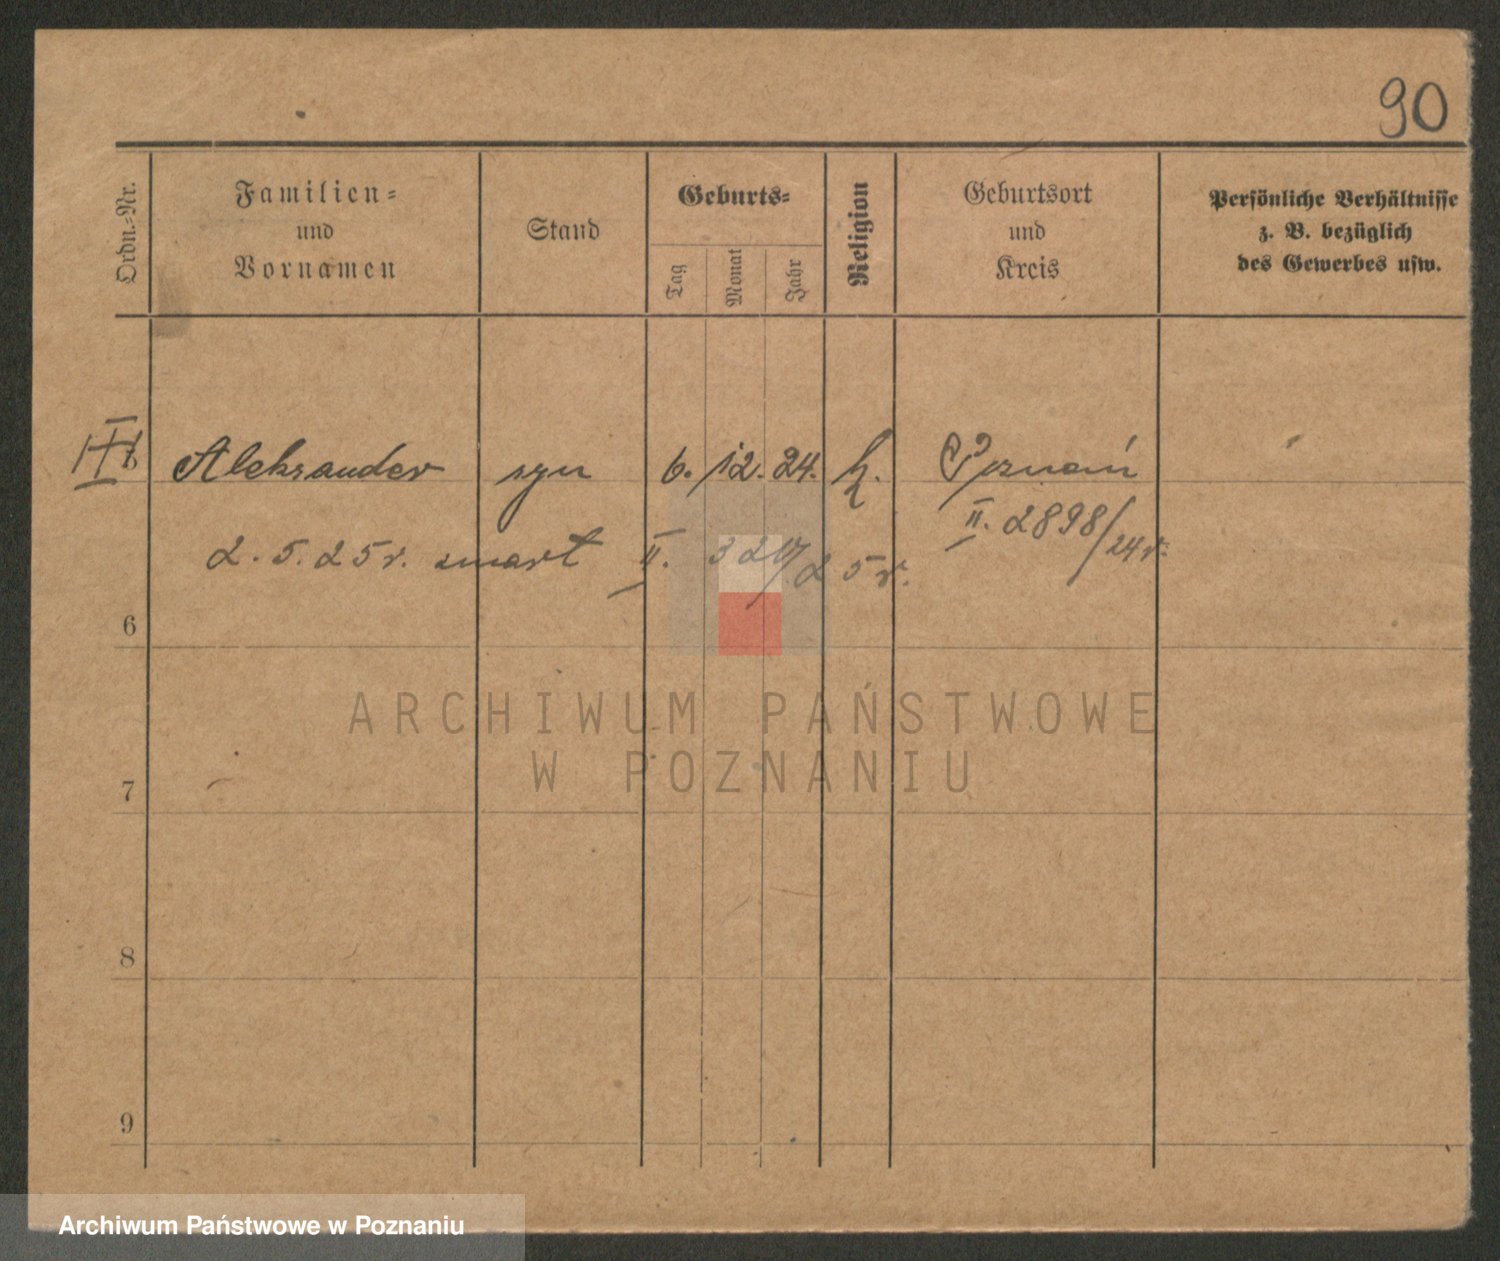 90
Ordn.-Nr.
Familien-
und
Vornamen
Stand
Geburts-
Tag
Monat
Jahr
Religion
Geburtsort
und
Kreis
Persönliche Verhältnisse
z. B. bezüglich
des Gewerbes usw.
Aleksander syn 6. 12. 24. k. Poznań
II. 2898/24 r.
2. 5. 25 r. zmarł II. /25 r.
6
7
8
9
ARCHIWUM PAŃSTWOWE
W POZNANIU
Archiwum Państwowe w Poznaniu